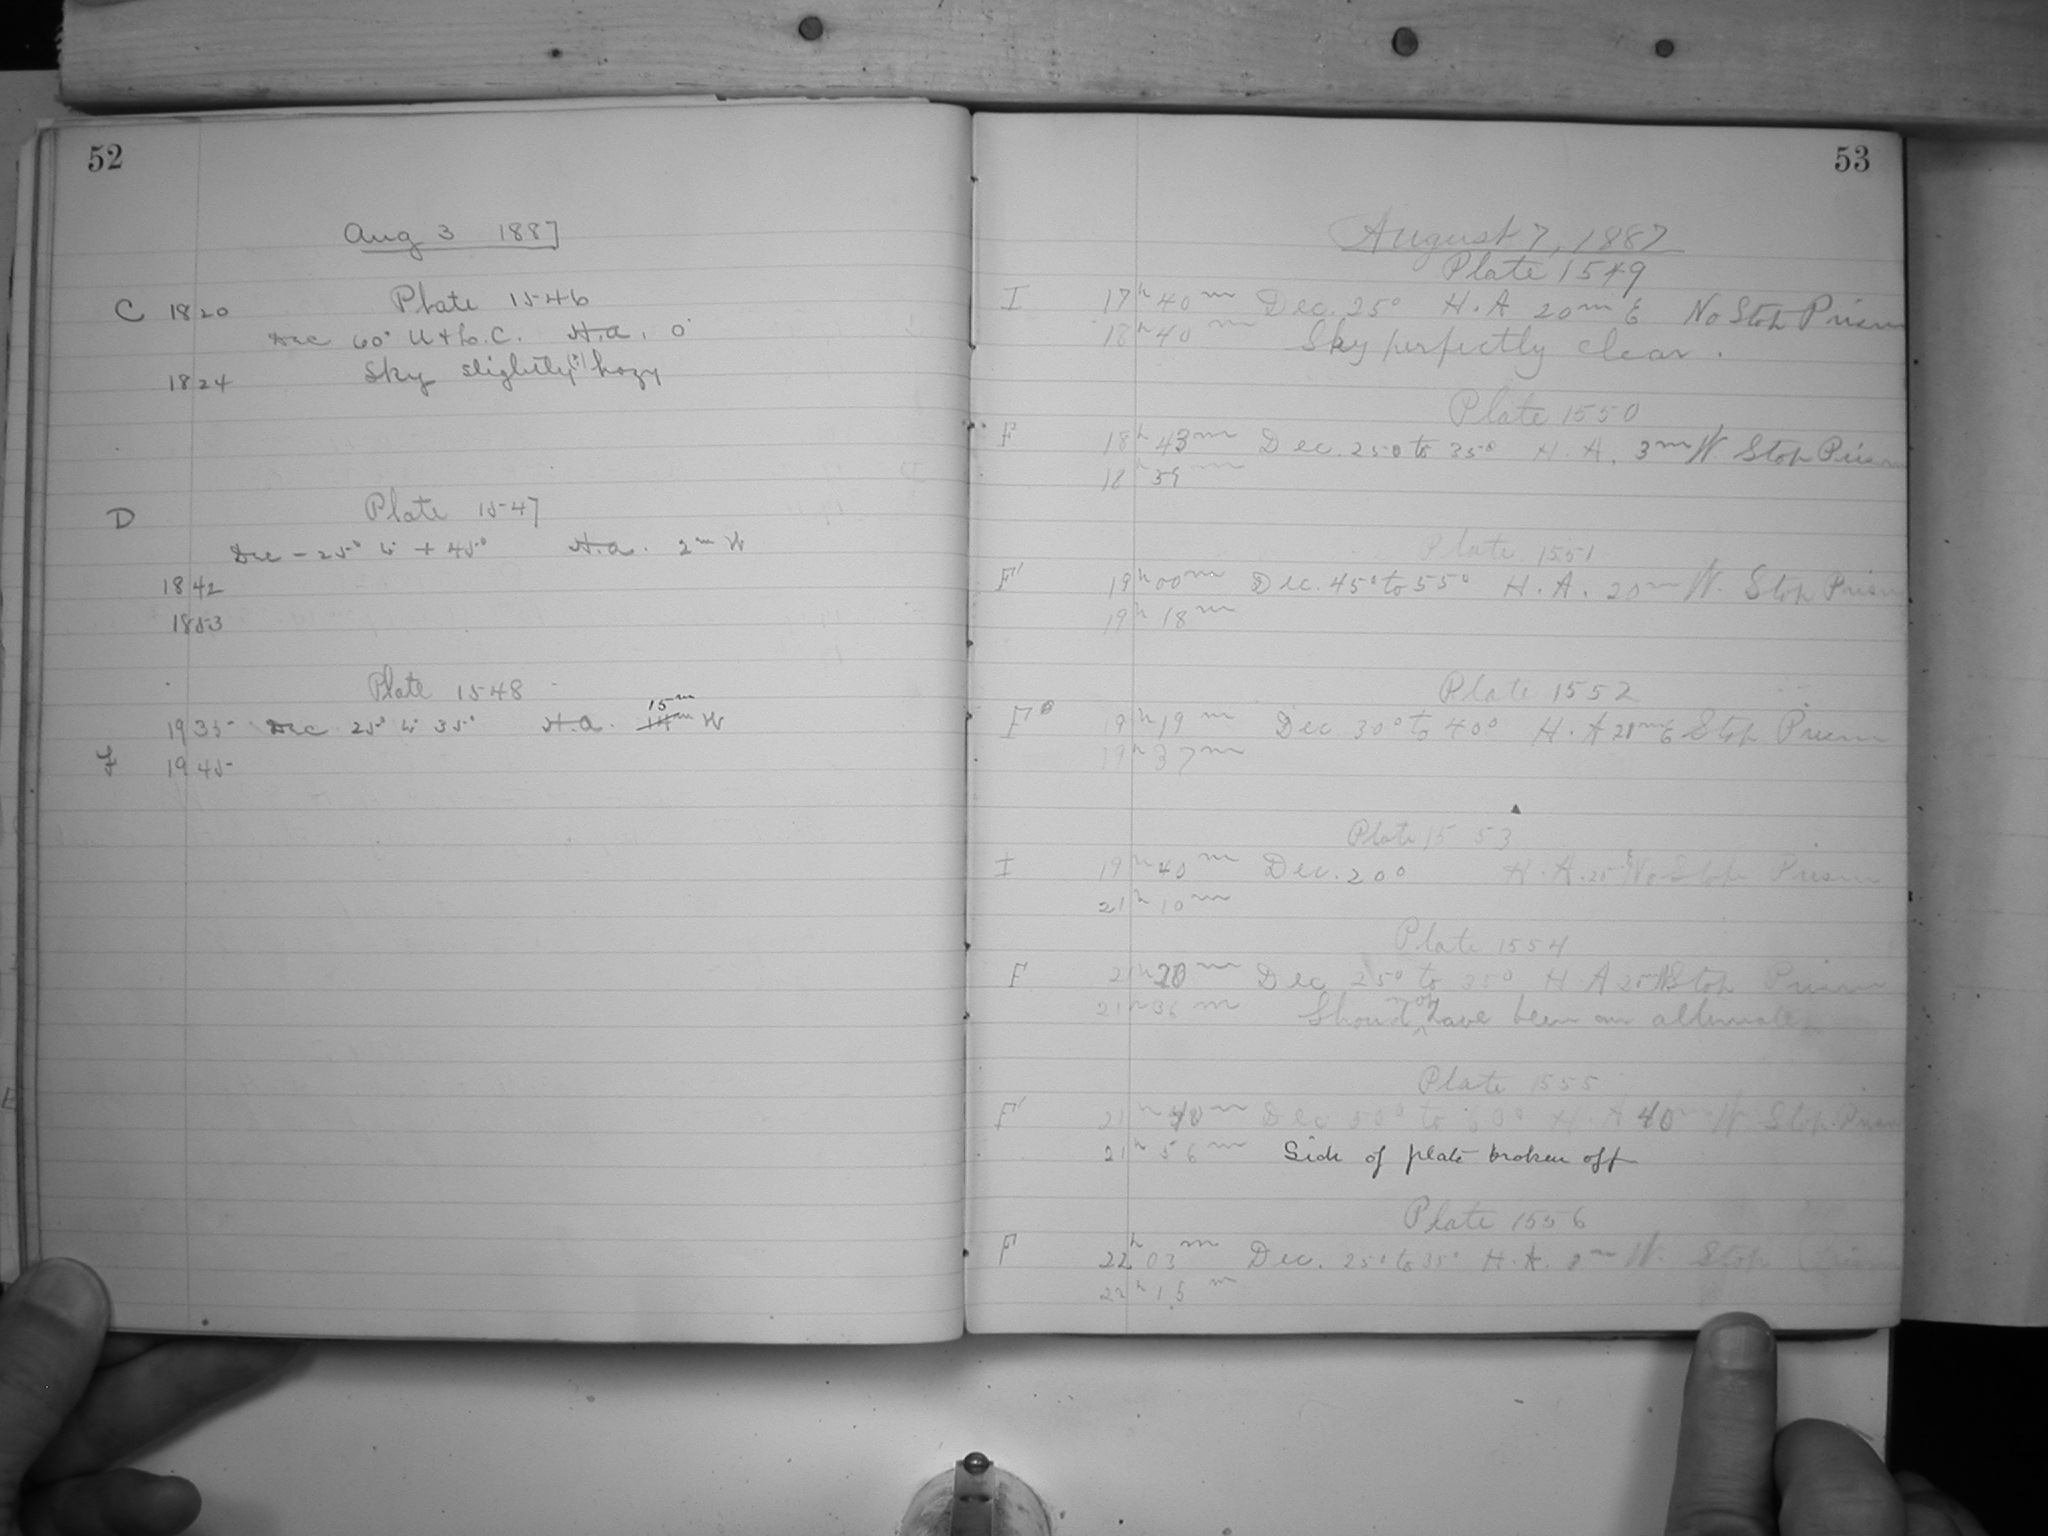 52
Aug 3 1887
C 18 20 Plate 1546
Dec 60° U & L.C. H.A. 0°
18 24 Sky slightly (?) hazy
D Plate 1547
Dec -25° to +45° H.A. 2m W
18 42
18 53
Plate 1548
15m
19 35 Dec 25° to 35° H.A. W
F 19 45
53
August 7, 1887
Plate 1549
I 17h 40m Dec. 25° H.A 20m E No Stop Prism
18h 40m Sky perfectly clear.
Plate 1550
F 18h 43m Dec. 25° to 35° H.A. 3m W. Stop Prism
18 59m
Plate 1551
F' 19h 00m Dec. 45° to 55° H.A. 20m W. Stop Prism
19h 18m
Plate 1552
F 19h 19m Dec 30° to 40° H.A 28m E Stop Prism
19h 37m
Plate 1553
I 19h 40m Dec. 20° H.A. 25 No Stop Prism
21h 10m
Plate 1554
F 21h 20m Dec 25° to 35° H A 25m W Stop Prism
21h 36m Should not have been an alternate
Plate 1555
F' 21h 40m Dec 50° to 60° H.A 40m W Stop Prism
21h 56m Side of plate broken off
Plate 1556
F 22h 03m Dec. 25° to 35° H.A. 8m W. Stop Prism
22h 15m